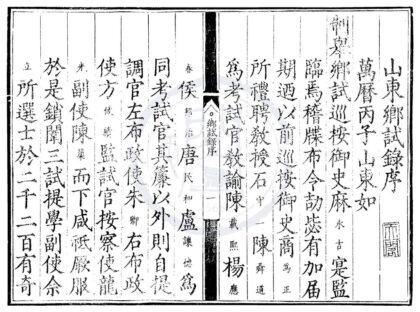 山東鄉試錄序
萬曆丙子山東如
制舉鄉試巡按御史麻永吉寔監
臨焉稽牒布令劼毖有加屆
期迺以前巡按御史商為正
所禮聘教授石中陳舜道
為考試官教諭陳載熙楊應
鄉試錄序
一
春侯邦治唐民和盧讓德為
同考試官其簾以外則自提
調官左布政使朱卿右布政
使方監試官按察使龍
光副使陳而下咸祗厥服
於是鎖闈三試提學副使佘
立所選士於二千二百有奇